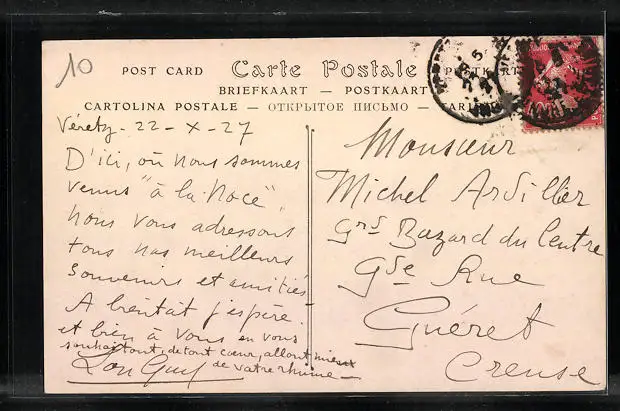 10
POST CARD Carte Postale POSTKART
BRIEFKAART — POSTKAART
CARTOLINA POSTALE — ОТКРЫТОЕ ПИСЬМО —
Véretz - 22 - X - 27
D'ici, où nous sommes
venus "à la Noce",
nous vous adressons
tous nos meilleurs
souvenirs et amitiés
A bientôt j'espère.
et bien à vous en vous
souhaitant, de tout cœur, allant mieux
de votre rhume —
Monsieur
Michel Ardillier
Grd Bazard du Centre
Gde Rue
Guéret
Creuse